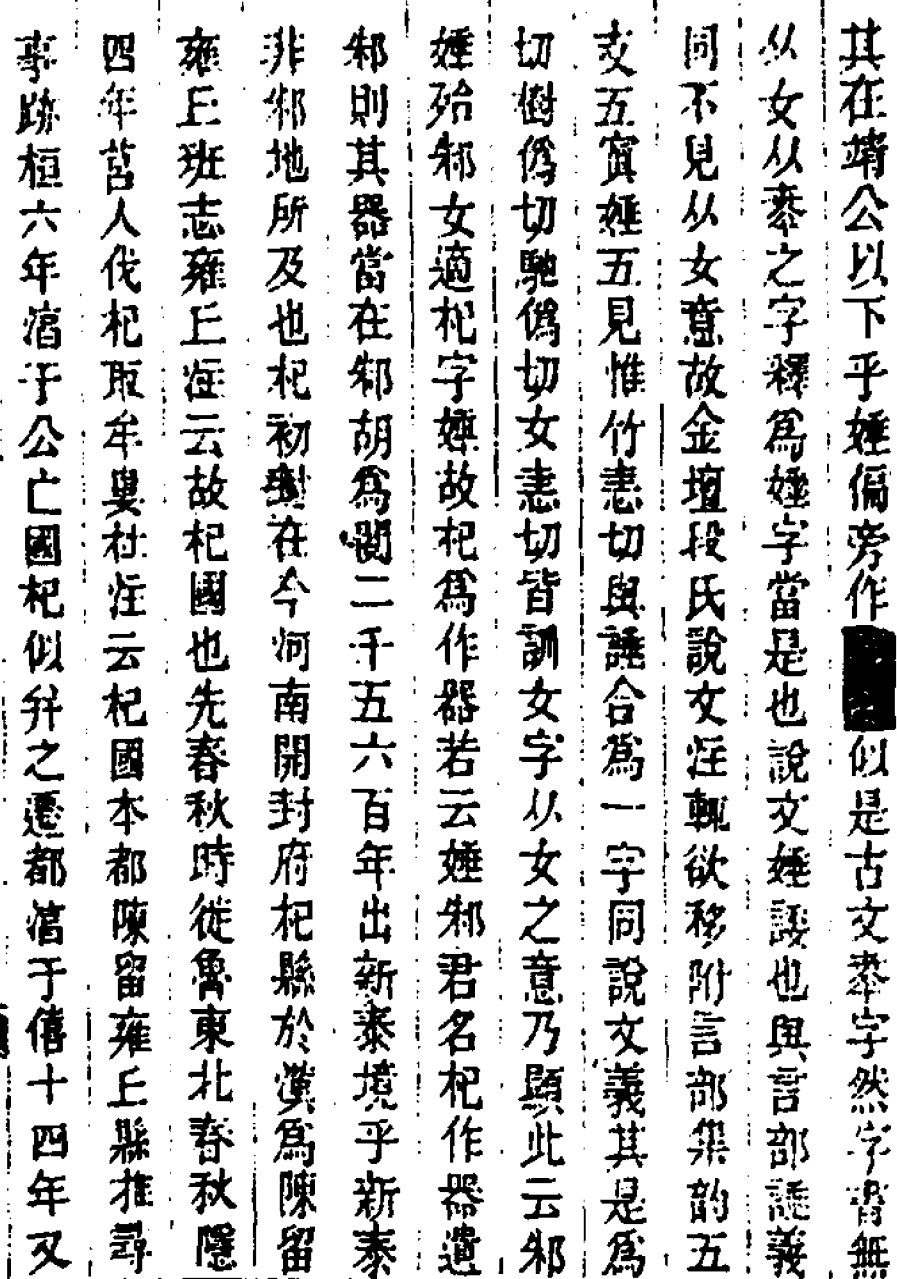 其在靖公以下乎娷偏旁作似是古文𠂹字然字書無
从女从𠂹之字釋爲娷字當是也說文娷諉也與言部諈義
同不見从女意故金壇段氏說文注輒欲移附言部集韵五
支五寘娷五見惟竹恚切與諈合爲一字同說文義其是爲
切樹僞切馳僞切女恚切皆訓女字从女之意乃顯此云邾
娷殆邾女適杞字娷故杞爲作器若云娷邾君名杞作器遺
邾則其器當在邾胡爲閱二千五六百年出新泰境乎新泰
非邾地所及也杞初封在今河南開封府杞縣於漢爲陳留
雍丘班志雍丘注云故杞國也先春秋時徙魯東北春秋隱
四年莒人伐杞取牟婁杜注云杞國本都陳留雍丘縣推尋
事跡桓六年淳于公亡國杞似并之遷都淳于僖十四年又